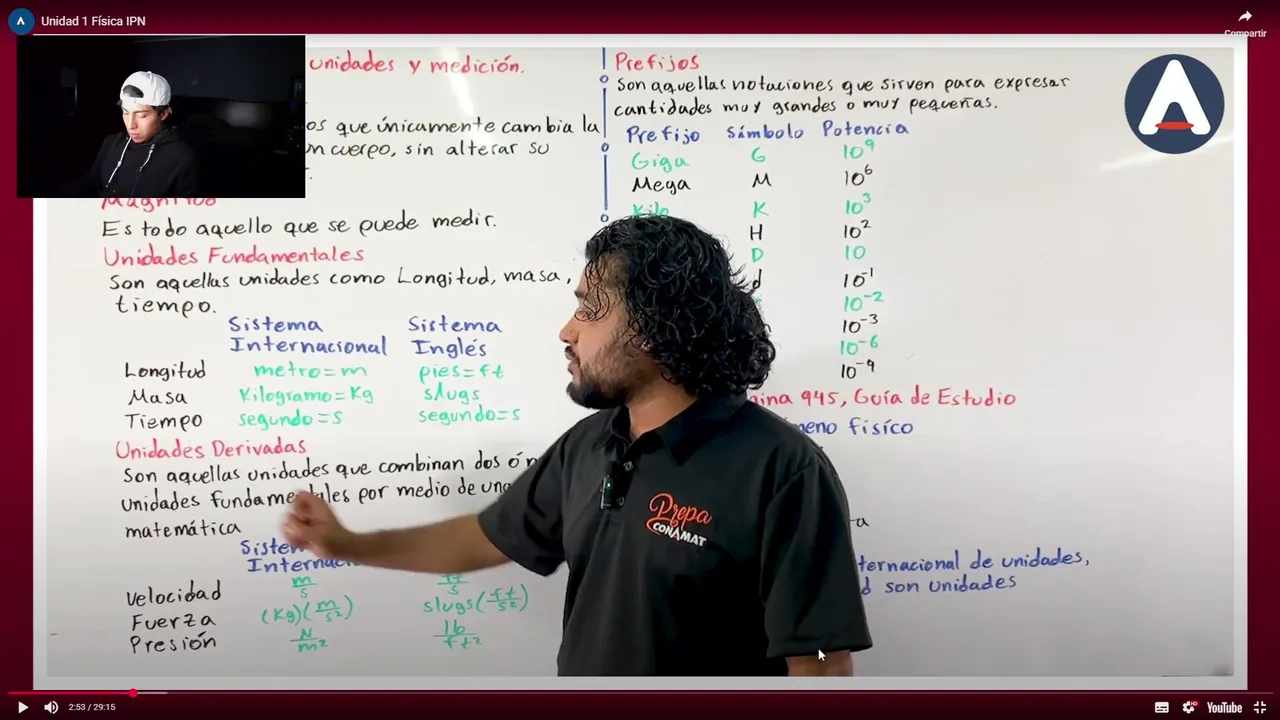 Unidad 1 Física IPN
Compartir
unidades y medición.
os que únicamente cambia la
un cuerpo, sin alterar su
Magnitud
Es todo aquello que se puede medir.
Unidades Fundamentales
Son aquellas unidades como Longitud, masa,
tiempo.
Sistema Internacional
Sistema Inglés
Longitud metro=m pies=ft
Masa Kilogramo=Kg slugs
Tiempo segundo=s segundo=s
Unidades Derivadas
Son aquellas unidades que combinan dos ó
unidades fundamentales por medio de una
matemática
Sistema Internacional
Velocidad m/s ft/s
Fuerza (Kg)(m/s²) slugs(ft/s²)
Presión N/m² lb/ft²
Prefijos
Son aquellas notaciones que sirven para expresar
cantidades muy grandes o muy pequeñas.
Prefijo Símbolo Potencia
Giga G 10⁹
Mega M 10⁶
Kilo K 10³
H 10²
D 10
d 10⁻¹
10⁻²
10⁻³
10⁻⁶
10⁻⁹
gina 945, Guía de Estudio
meno fisíco
ternacional de unidades,
d son unidades
Prepa
CONAMAT
2:53 / 29:15
HD
YouTube